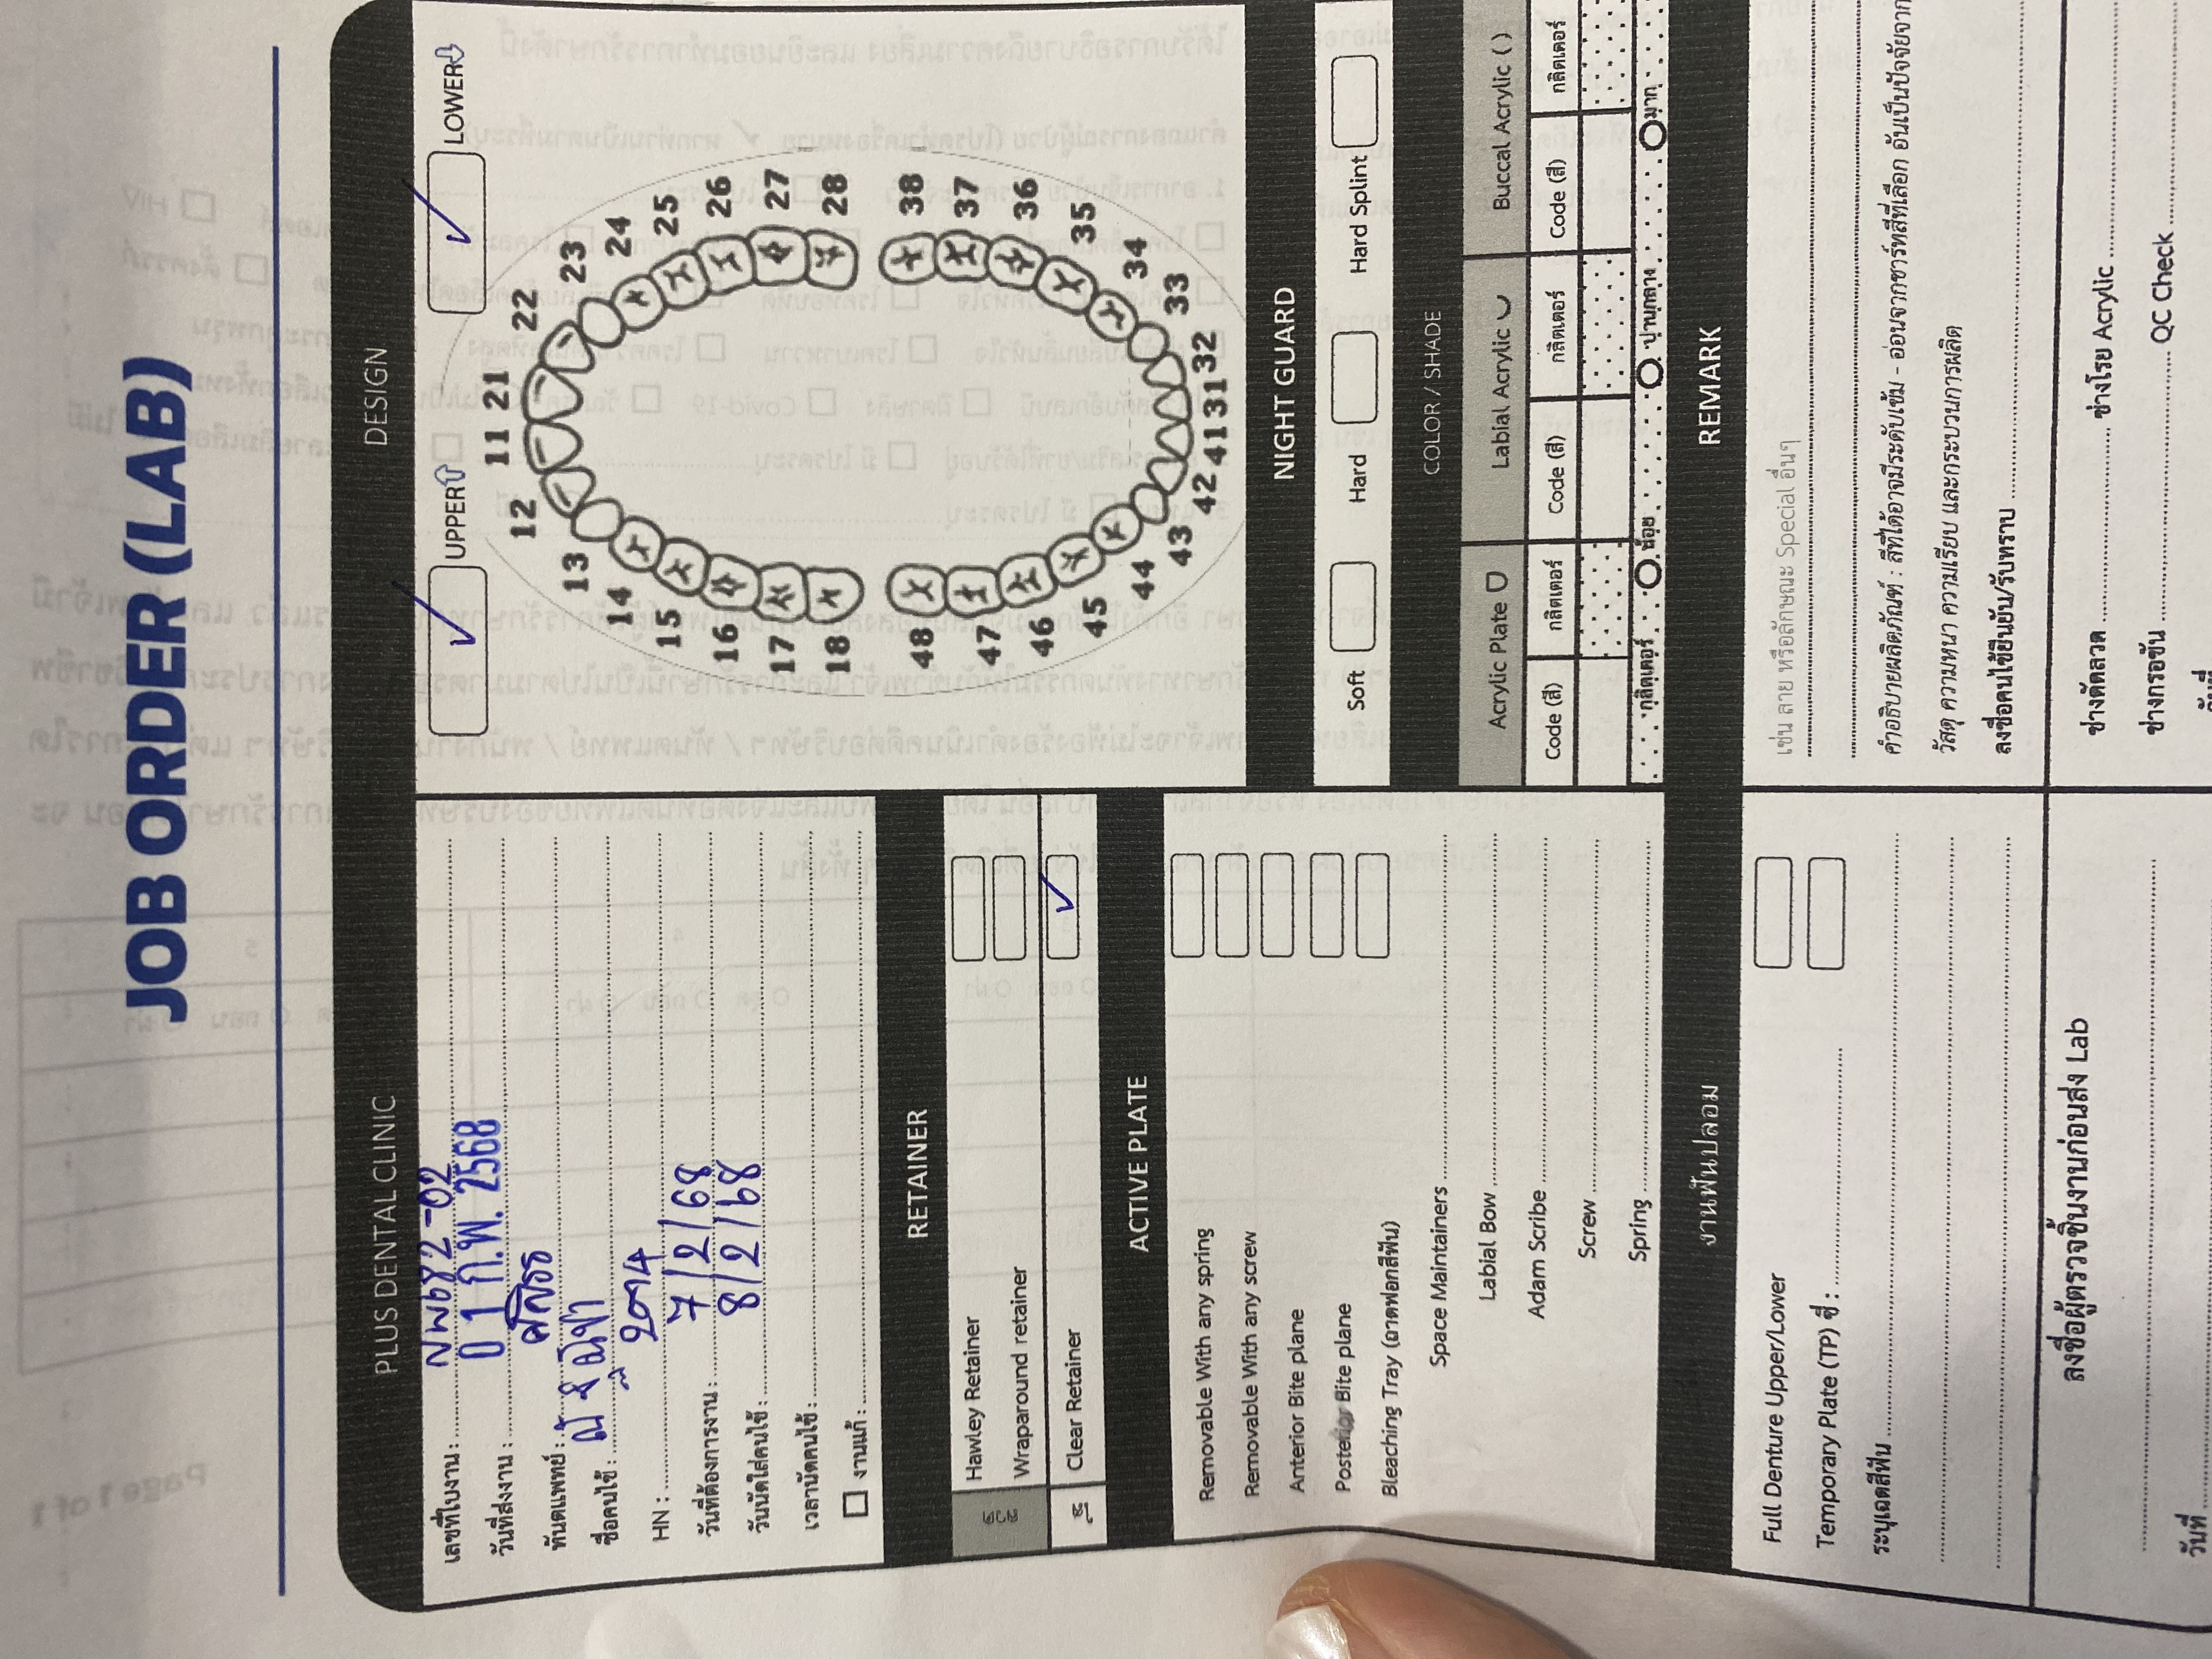 JOB ORDER (LAB)
PLUS DENTAL CLINIC
เลขที่ใบงาน : 682-02
วันที่ส่งงาน : 0 1 ก.พ. 2568
ทันตแพทย์ :
ชื่อคนไข้ : ณัฐณิชา
HN :
วันที่ต้องการงาน : 7/2/68
วันนัดใส่คนไข้ : 8/2/68
เวลานัดคนไข้ :
งานแก้ :
RETAINER
ลวด
Hawley Retainer
Wraparound retainer
ใส
Clear Retainer ✓
ACTIVE PLATE
Removable With any spring
Removable With any screw
Anterior Bite plane
Posterior Bite plane
Bleaching Tray (ถาดฟอกสีฟัน)
Space Maintainers
Labial Bow
Adam Scribe
Screw
Spring
งานฟันปลอม
Full Denture Upper/Lower
Temporary Plate (TP) ซี่ :
ระบุเฉดสีฟัน
ลงชื่อผู้ตรวจชิ้นงานก่อนส่ง Lab
วันที่
DESIGN
✓ UPPER ✓ LOWER
11 21
12 22
13 23
14 24
15 25
16 26
17 27
18 28
48 38
47 37
46 36
45 35
44 34
43 33
42 41 31 32
NIGHT GUARD
Soft Hard Hard Splint
COLOR / SHADE
Acrylic Plate Labial Acrylic Buccal Acrylic ( )
Code (สี) กลิตเตอร์ Code (สี) กลิตเตอร์ Code (สี) กลิตเตอร์
กลิตเตอร์ น้อย ปานกลาง มาก
REMARK
เช่น ลาย หรือลักษณะ Special อื่นๆ
คำอธิบายผลิตภัณฑ์ : สีที่ได้อาจมีระดับเข้ม - อ่อนจากชาร์ทสีที่เลือก อันเป็นปัจจัยจาก
วัสดุ ความหนา ความเรียบ และกระบวนการผลิต
ลงชื่อคนไข้ยืนยัน/รับทราบ
ช่างดัดลวด ช่างโรย Acrylic
ช่างกรอขัน QC Check
วันที่